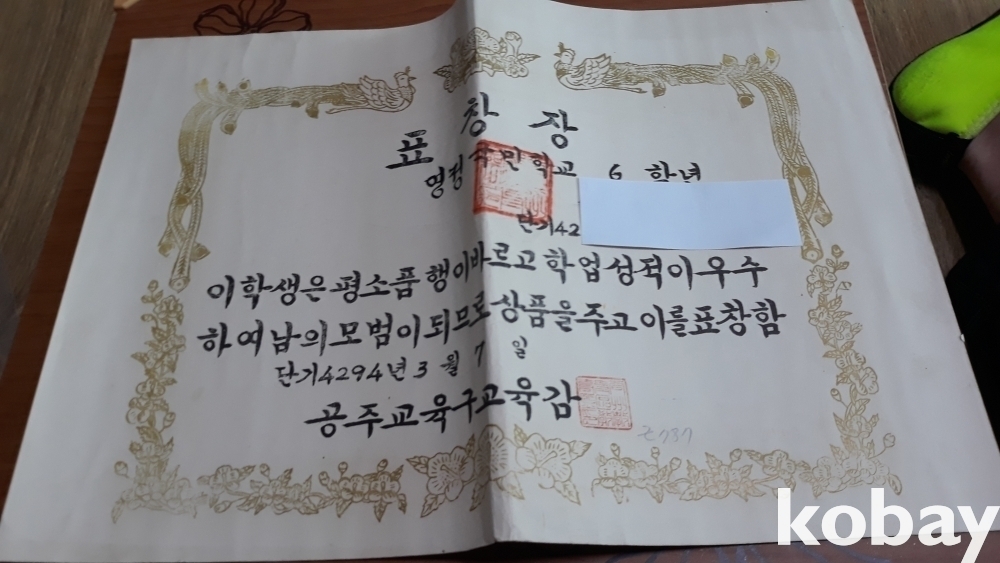 표창장
영정국민학교 6 학년
단기42
이학생은평소품행이바르고학업성적이우수
하여남의모범이되므로상품을주고이를표창함
단기4294년3월7일
공주교육구교육감
kobay